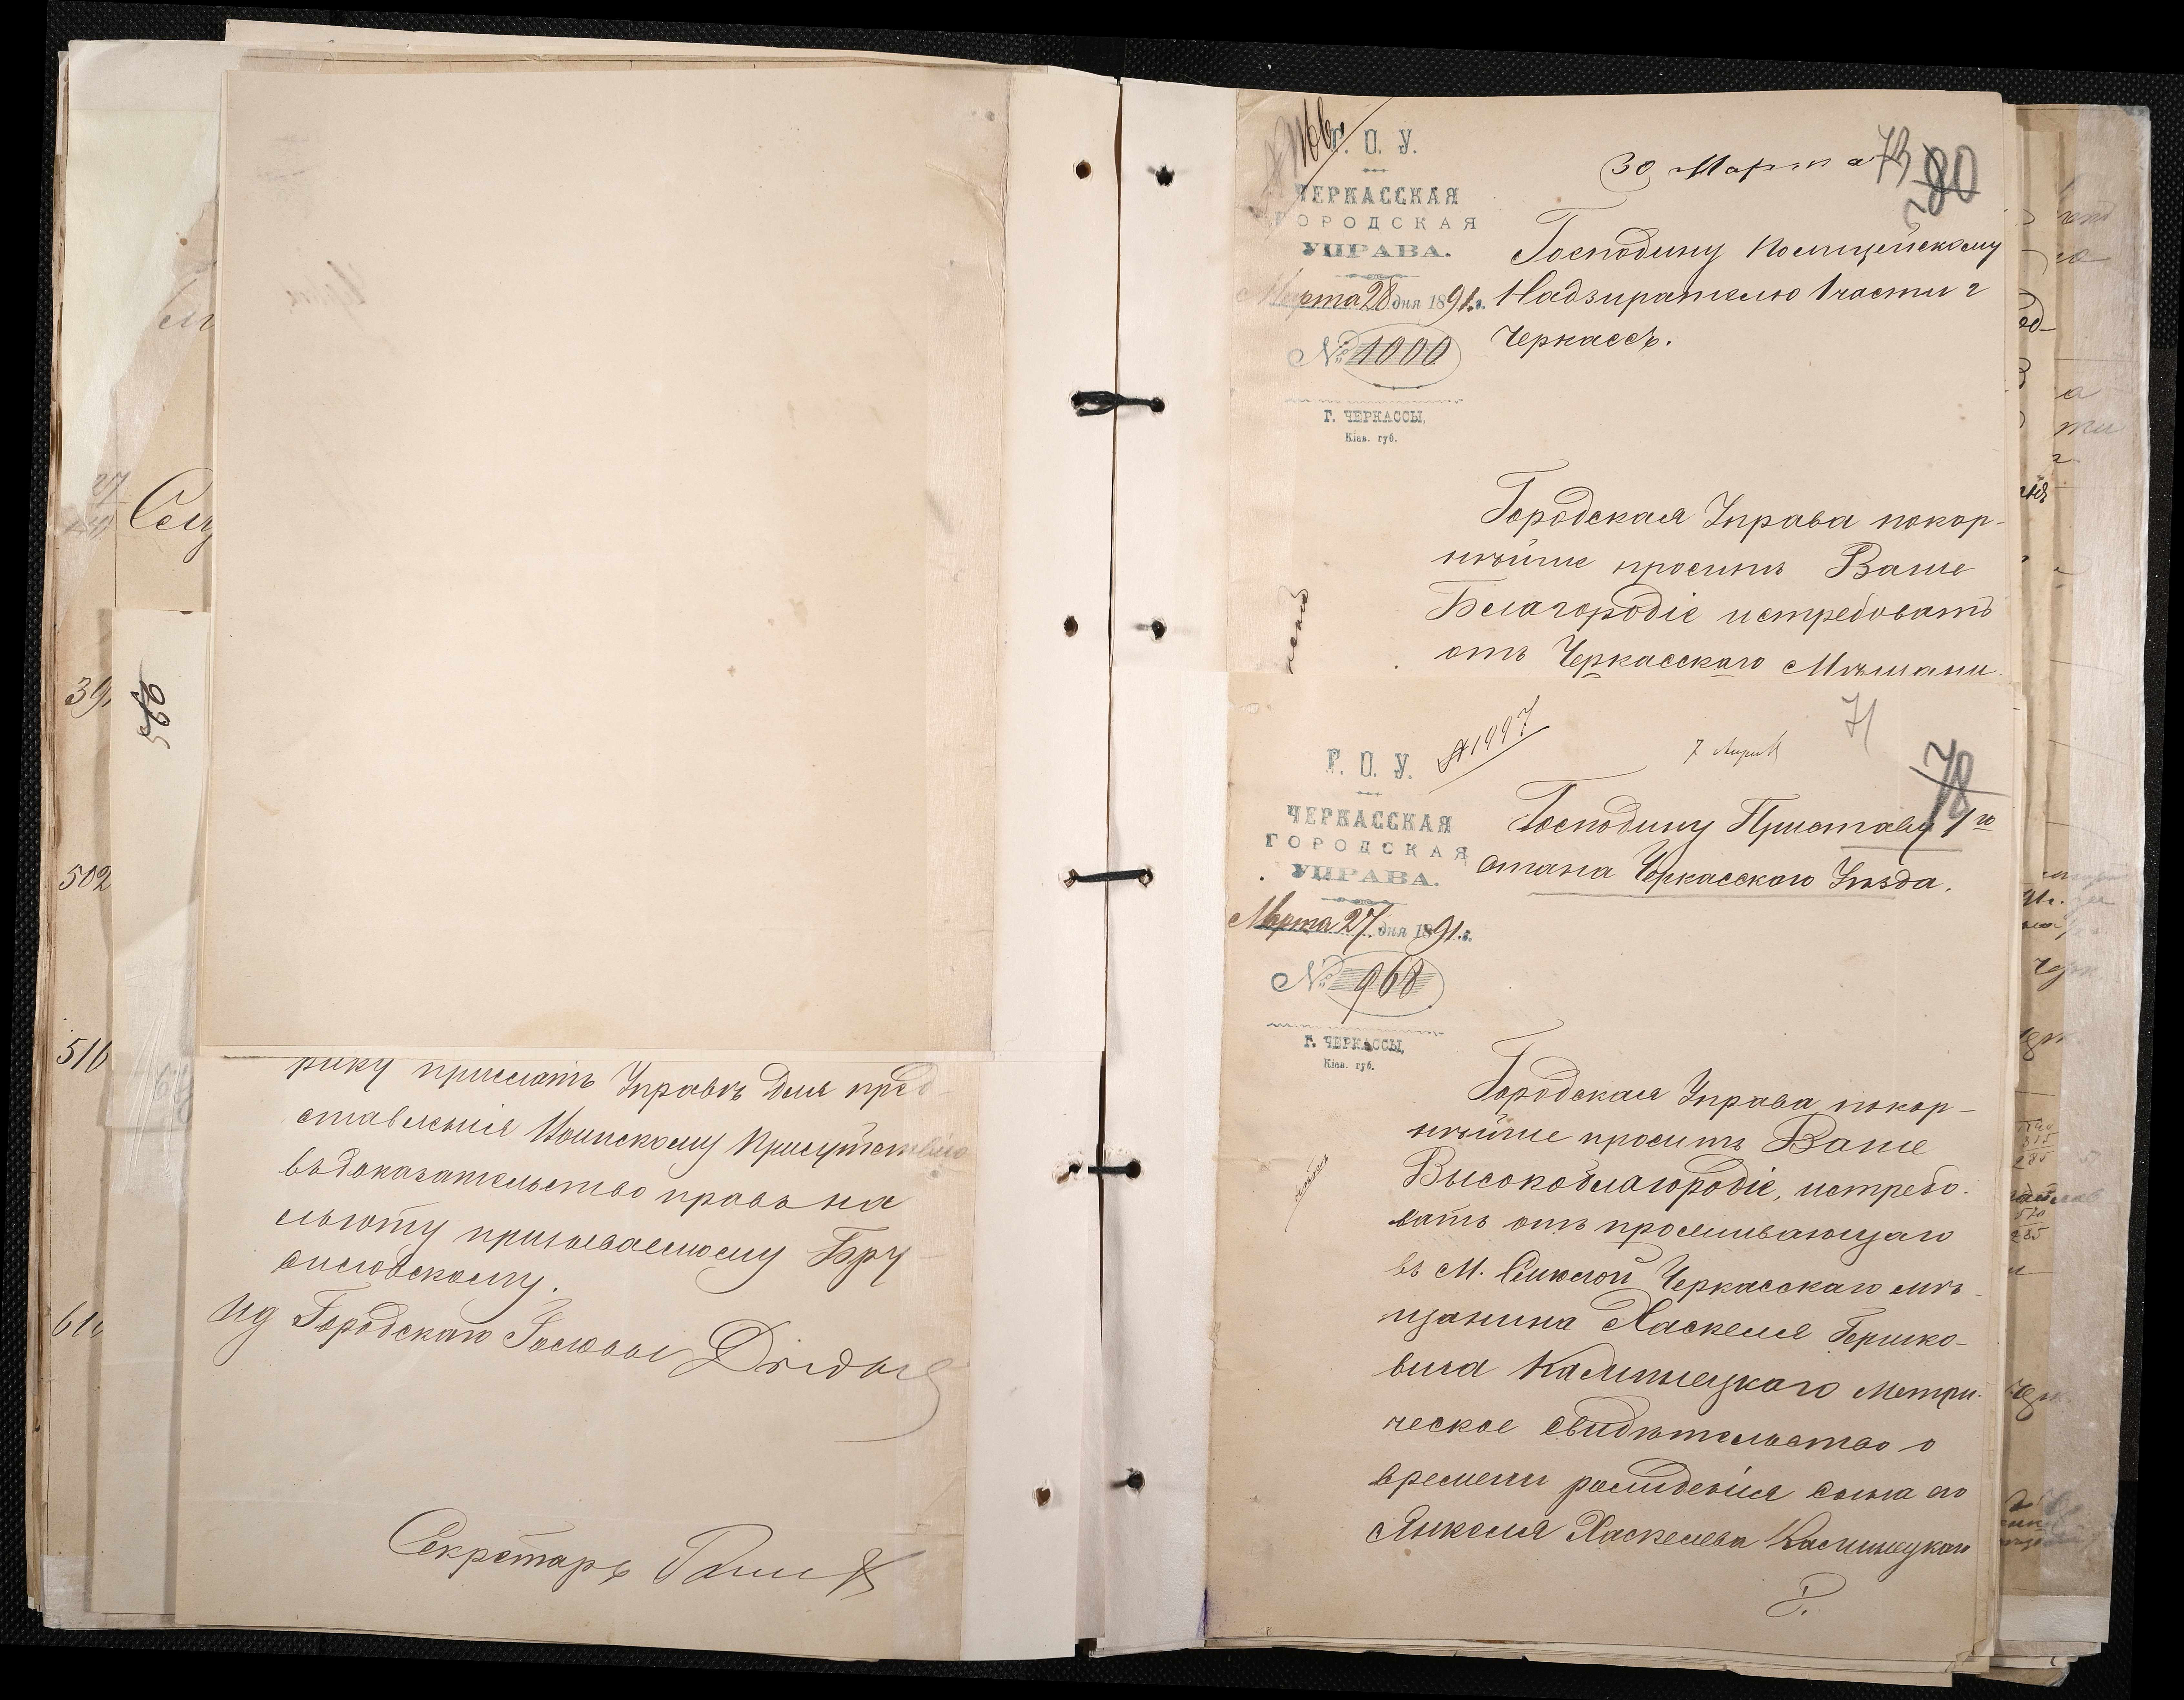 рику прислать Управѣ для пред-
ставленія Воинскому Присутствію
въ доказательство правъ на
льготу призываемому Бру
силовскому.
Ид Городскаго Головы
Секретарь
30 Марта
73
80
Г. О. У.
ЧЕРКАССКАЯ
ГОРОДСКАЯ
УПРАВА.
Марта 28 дня 1891 г.
№ 1000
Г. ЧЕРКАССЫ,
Кіев. губ.
Господину Полицейскому
Надзирателю 1 части г
Черкассъ.
Городская Управа покор-
нѣйше проситъ Ваше
Благородіе истребовать
отъ Черкасскаго Мѣщани
71
78
7 Апрѣл
№ 1497
Г. О. У.
ЧЕРКАССКАЯ
ГОРОДСКАЯ
УПРАВА.
Марта 27 дня 1891 г.
№ 968
Г. ЧЕРКАССЫ,
Кіев. губ.
Господину Приставу 1го
стана Черкасскаго Уѣзда.
Городская Управа покор-
нѣйше проситъ Ваше
Высокоблагородіе, истребо-
вать отъ проживающаго
въ М. Смѣлой Черкасскаго мѣ-
щанина Хаскеля Гершко-
вича Калинецкаго Метри-
ческое свидѣтельство о
времени рожденія сына его
Янкеля Хаскелева Калинецкаго
39
502
516